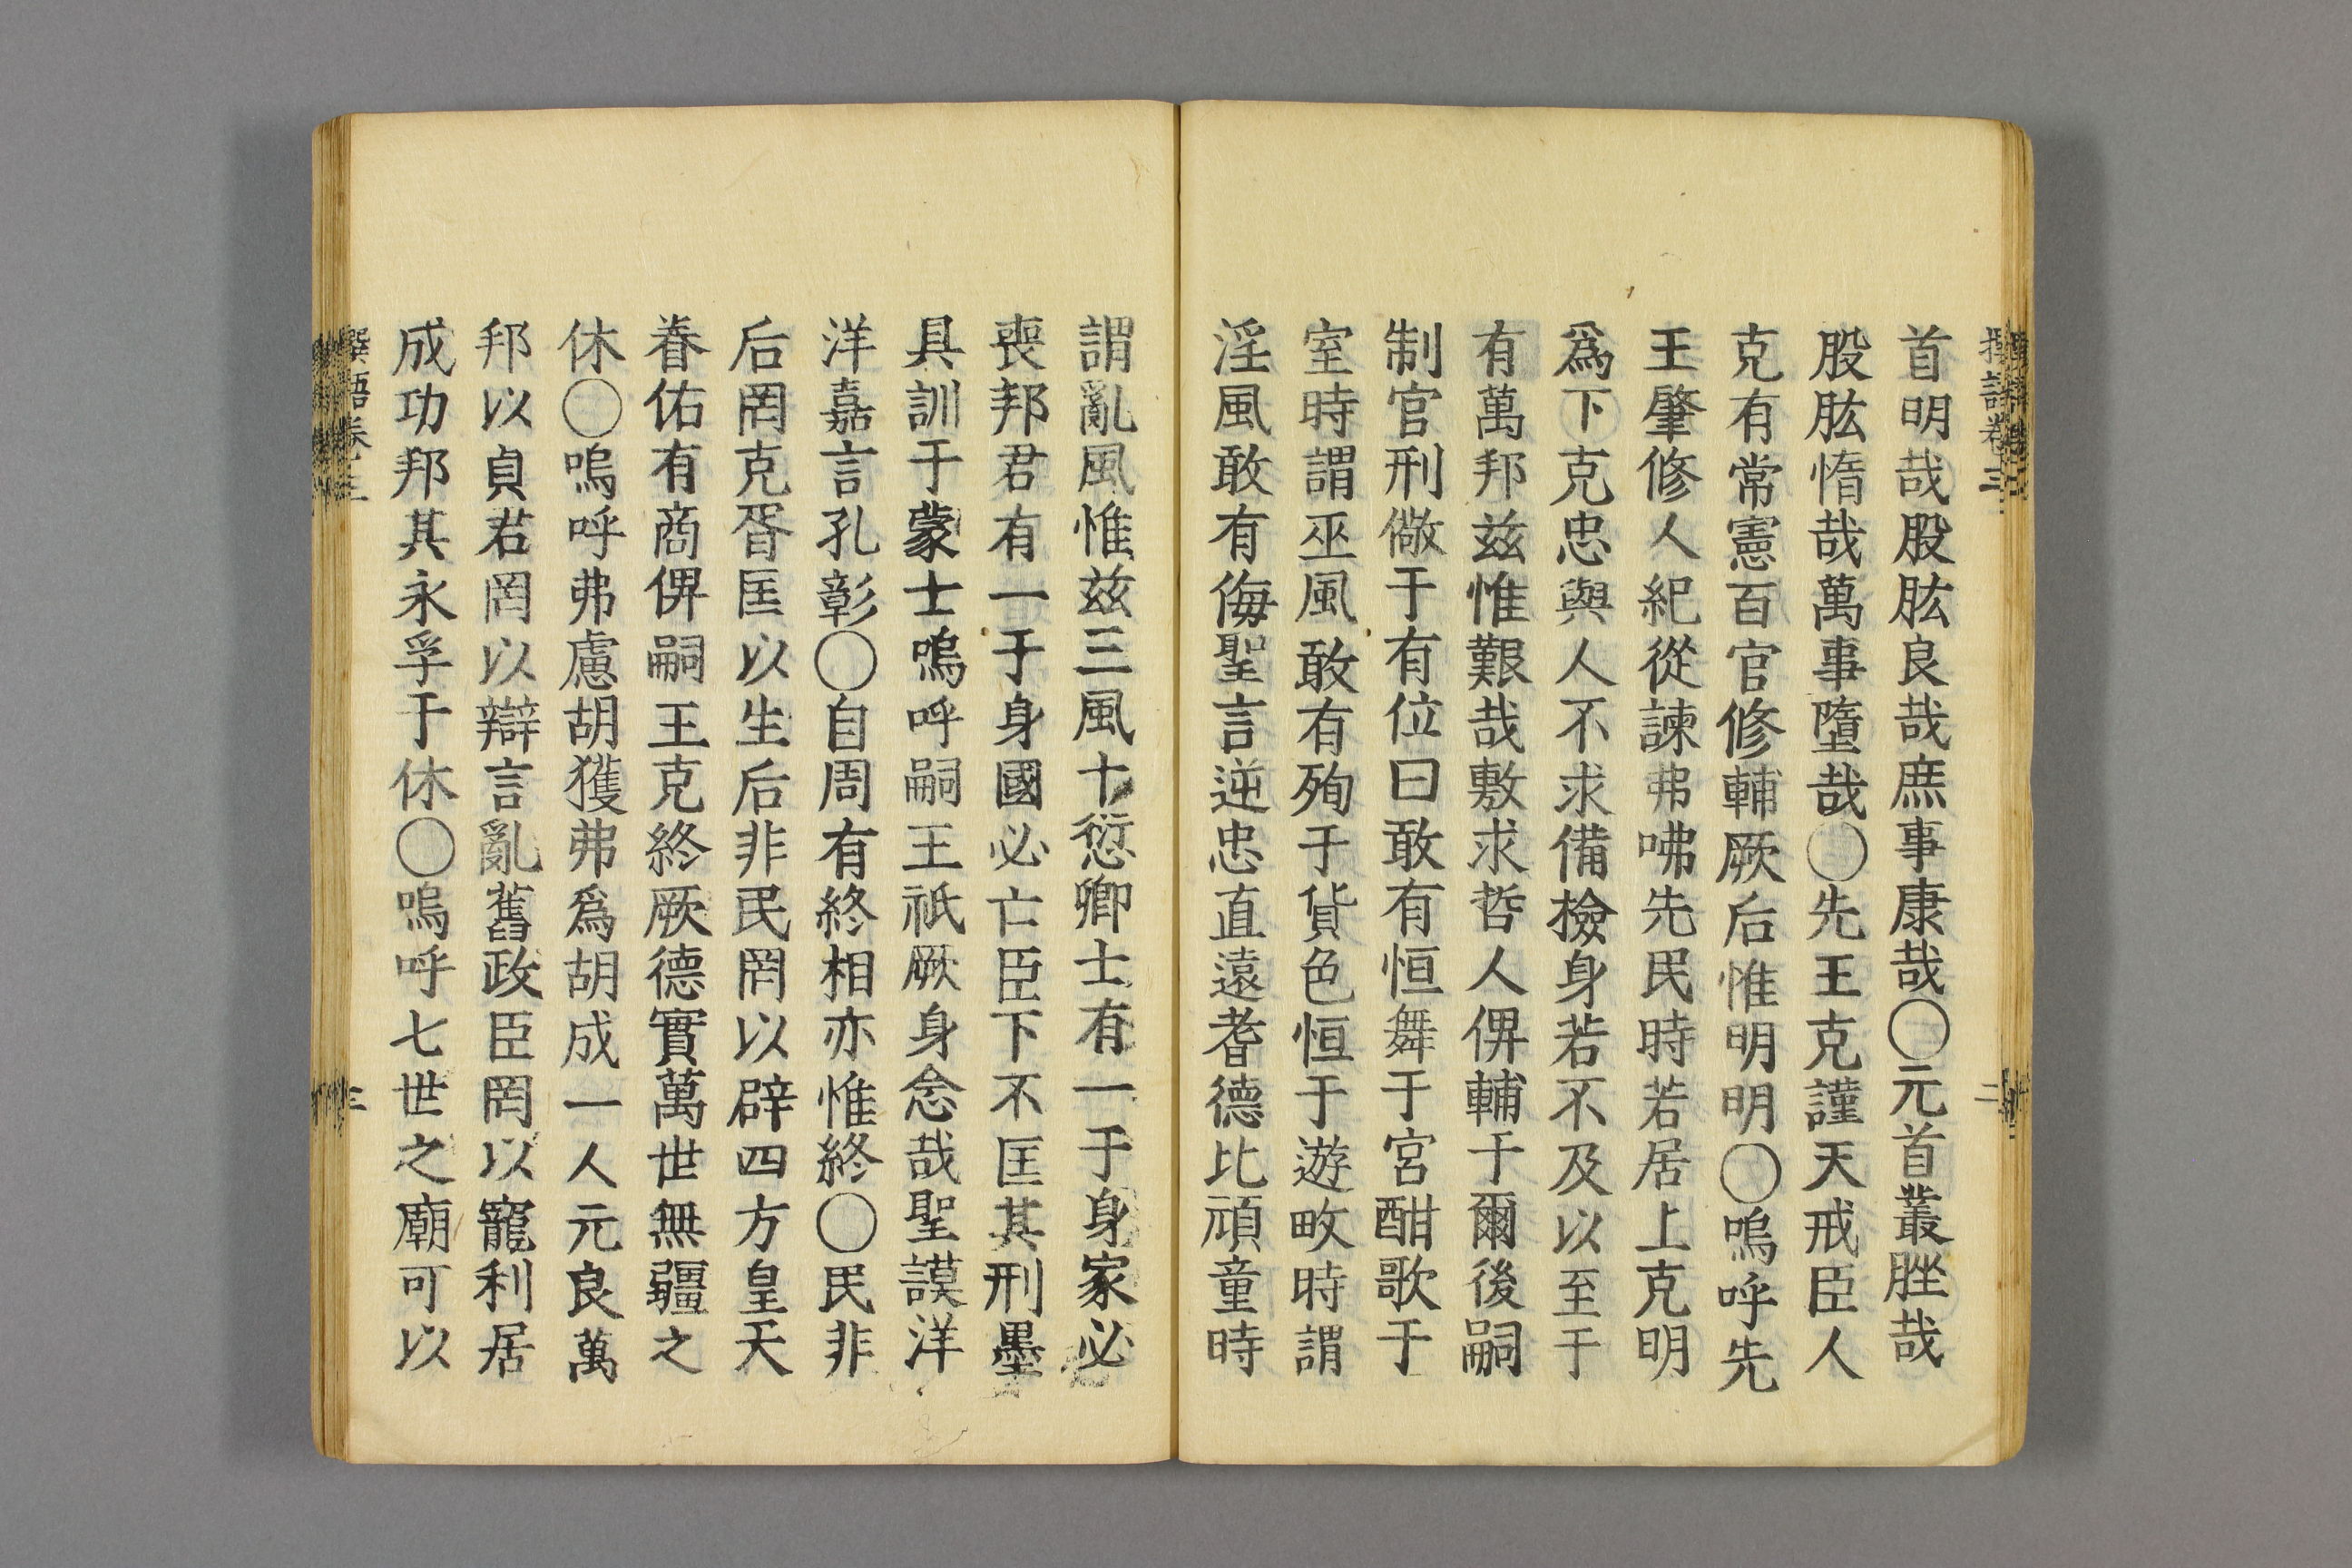 撰語卷三
二
首明哉股肱良哉庶事康哉〇元首叢脞哉
股肱惰哉萬事墮哉〇先王克謹天戒臣人
克有常憲百官修輔厥后惟明明〇嗚呼先
王肇修人紀從諫弗咈先民時若居上克明
爲下克忠與人不求備檢身若不及以至于
有萬邦玆惟艱哉敷求哲人俾輔于爾後嗣
制官刑儆于有位曰敢有恒舞于宮酣歌于
室時謂巫風敢有殉于貨色恒于遊畋時謂
淫風敢有侮聖言逆忠直遠耆德比頑童時
謂亂風惟玆三風十愆卿士有一于身家必
喪邦君有一于身國必亡臣下不匡其刑墨
具訓于蒙士嗚呼嗣王祇厥身念哉聖謨洋
洋嘉言孔彰〇自周有終相亦惟終〇民非
后罔克胥匡以生后非民罔以辟四方皇天
眷佑有商俾嗣王克終厥德實萬世無疆之
休〇嗚呼弗慮胡獲弗爲胡成一人元良萬
邦以貞君罔以辯言亂舊政臣罔以寵利居
成功邦其永孚于休〇嗚呼七世之廟可以
撰語卷三
三